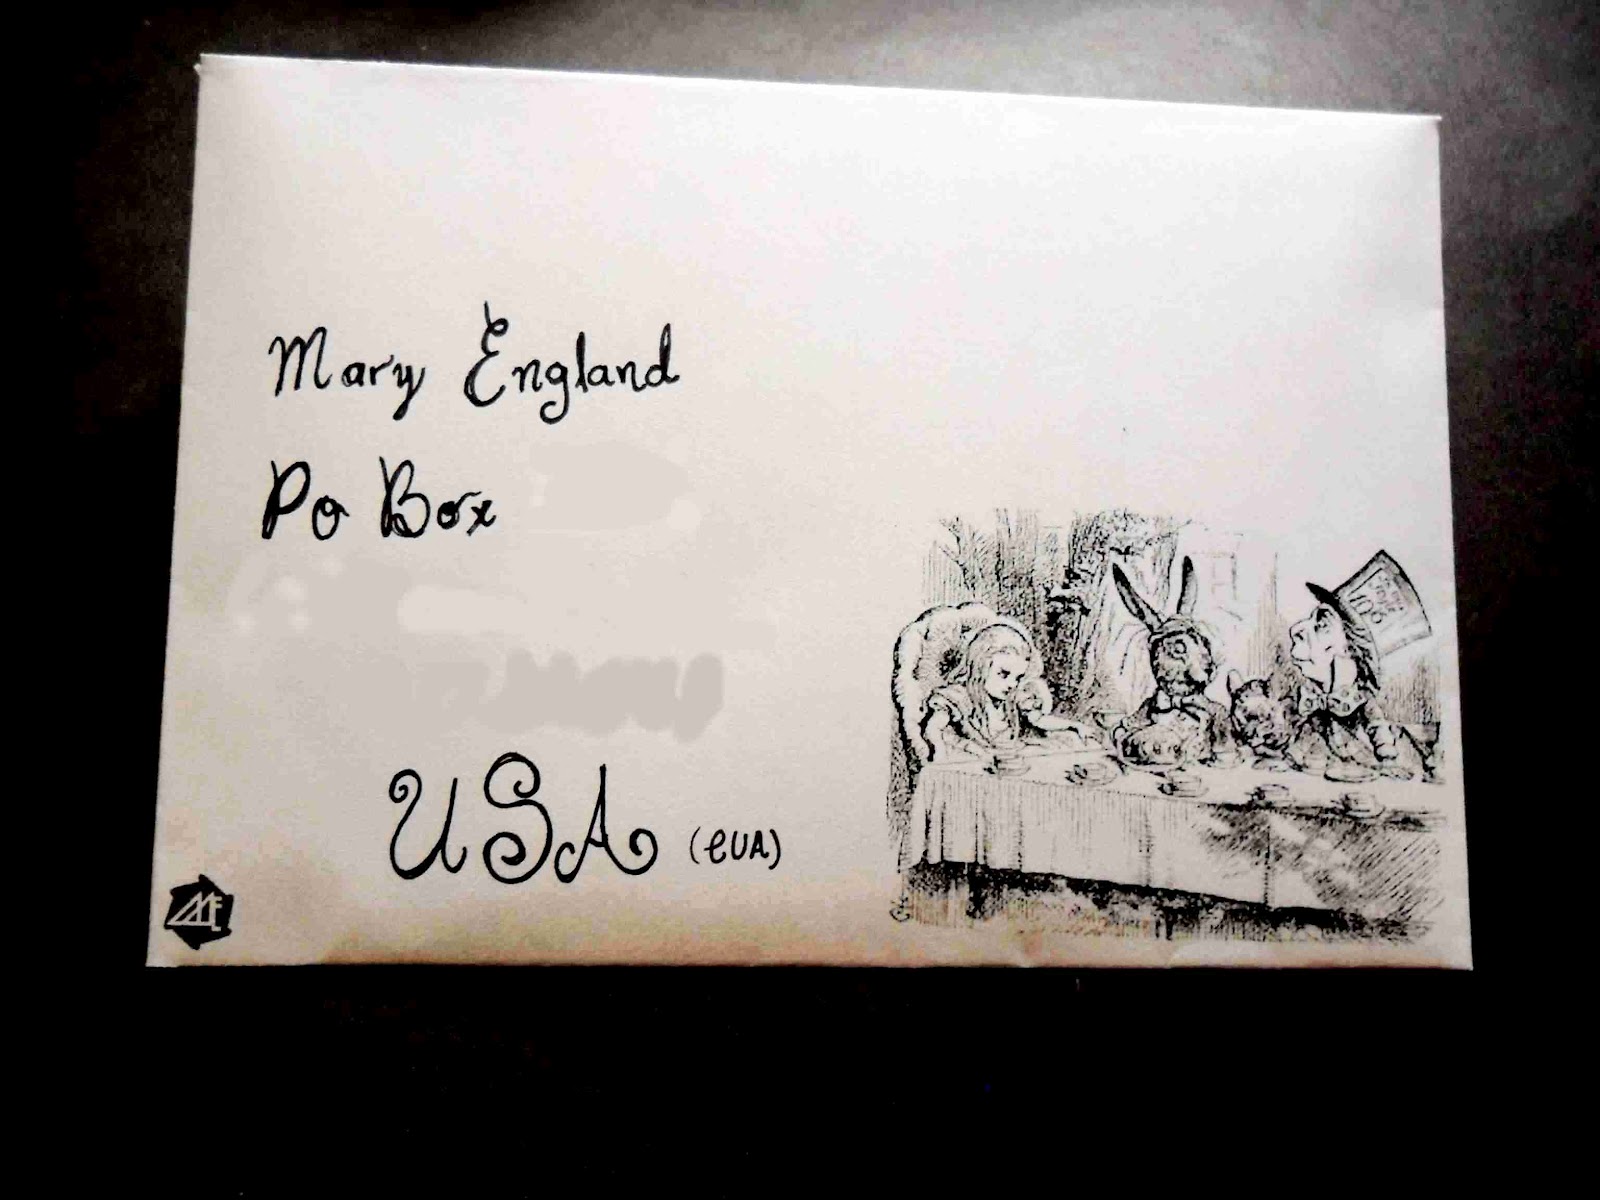 Mary England
Po Box
USA (EUA)